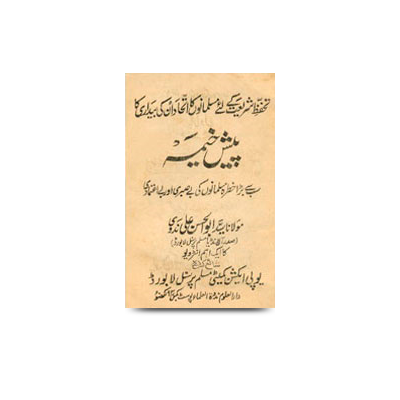 تحفظ شریعت کے لئے مسلمانوں کا اتحاد ان کی بیداری کا
پیش خیمہ
سب سے بڑا خطرہ مسلمانوں کی بے صبری اور بے اعتمادی
مولانا سید ابوالحسن علی ندوی
(صدر آل انڈیا مسلم پرسنل لا بورڈ)
کا ایک اہم انٹرویو
یوپی ایکشن کمیٹی مسلم پرسنل لا بورڈ
دارالعلوم ندوۃ العلماء پوسٹ بکس لکھنؤ